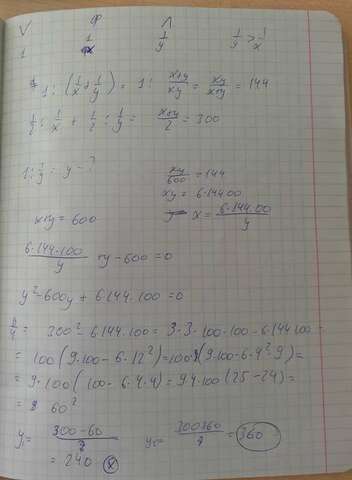 V Ф Л
1 1/x 1/y 1/y > 1/x
1 : (1/x + 1/y) = 1 : (x+y)/(xy) = xy/(x+y) = 144
1/2 : 1/x + 1/2 : 1/y = (x+y)/2 = 300
1 : 1/y = y - ?
xy/600 = 144
xy = 6·14400
x+y = 600
x = 6·144·00/y
6·144·100/y + y - 600 = 0
y² - 600y + 6·144·100 = 0
D/4 = 300² - 6·144·100 = 3·3·100·100 - 6·144·100 =
= 100(9·100 - 6·12²) = 100·(9·100 - 6·4²·9) =
= 9·100(100 - 6·4·4) = 9·4·100(25 - 24) =
= 60²
y₁ = 300-60
= 240
= 360